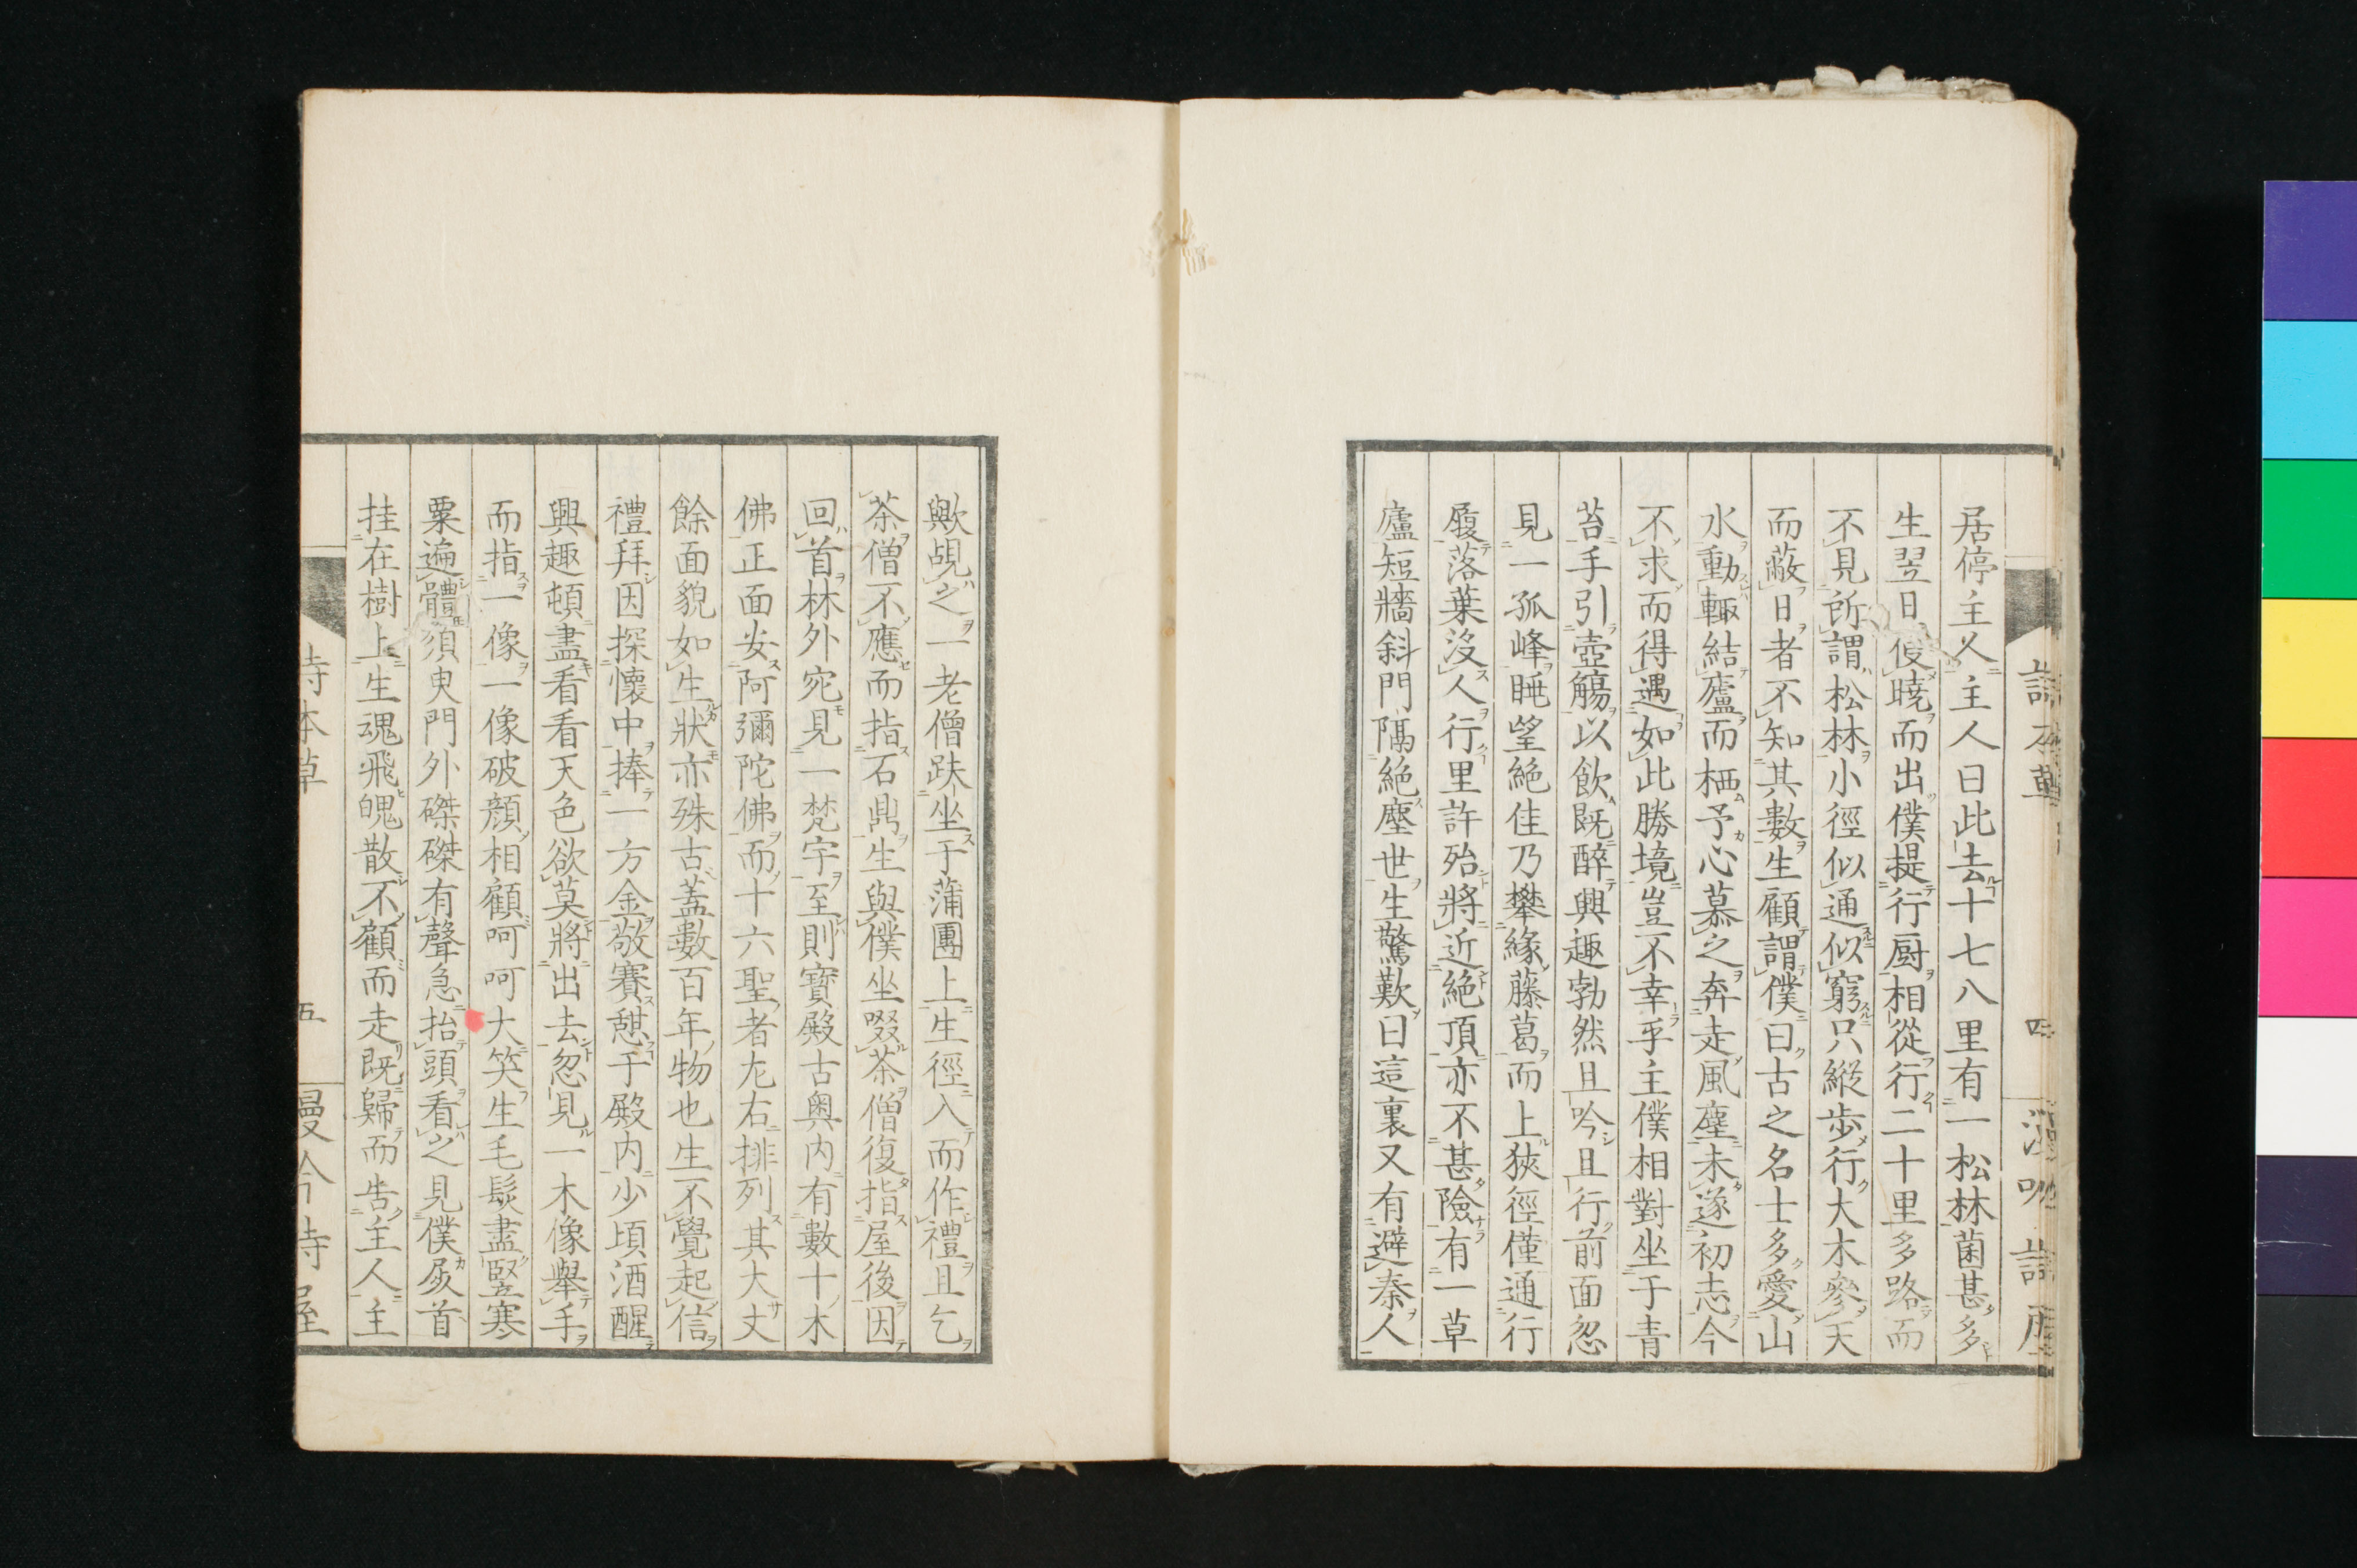 居停主人主人曰此去十七八里有一松林菌甚多
生翌日侵曉而出僕提行厨相從行二十里多路而
不見所謂松林小徑似通似窮只縱步行大木參天
而蔽日者不知其數生顧謂僕曰古之名士多愛山
水動輙結廬而栖予心慕之奔走風塵未遂初志今
不求而得遇如此勝境豈不幸乎主僕相對坐于青
苔手引壺觴以飲既醉興趣勃然且吟且行前面忽
見一孤峰睡望絶佳乃攀緣藤葛而上狹徑僅通行
履落葉沒人行里許殆將近絶頂亦不甚險有一草
廬短牆斜門隔絶塵世生驚歎曰這裏又有避秦人
歟覘之一老僧趺坐于蒲團上生徑入而作禮且乞
茶僧不應而指石鼎生與僕坐啜茶僧復指屋後因
回首林外宛見一梵宇至則寶殿古奥内有數十木
佛正面安阿彌陀佛而十六聖者左右排列其大丈
餘面貌如生狀亦殊古蓋數百年物也生不覺起信
禮拜因探懷中捧一方金敬賽憩于殿内少頃酒醒
興趣頓盡看看天色欲莫將出去忽見一木像舉手
而指一像一像破顔相顧呵呵大笑生毛髮盡竪寒
粟遍體須臾門外磔磔有聲急抬頭看之見僕屍首
挂在樹上生魂飛魄散不顧而走既歸而告主人主
五